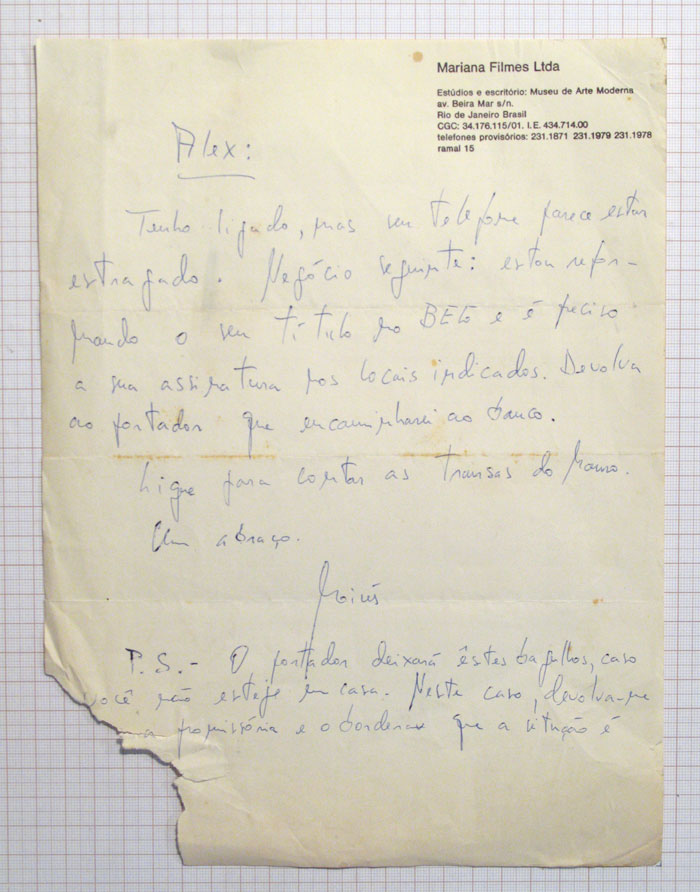 Mariana Filmes Ltda
Estúdios e escritório: Museu de Arte Moderna
av. Beira Mar s/n.
Rio de Janeiro Brasil
CGC: 34.176.115/01. I.E. 434.714.00
telefones provisórios: 231.1871 231.1979 231.1978
ramal 15
Alex:
Tenho ligado, mas seu telefone parece estar
estragado. Negócio seguinte: estou refor-
mando o seu título no BEG e é preciso
a sua assinatura nos locais indicados. Devolva
ao portador que encaminharei ao banco.
Ligue para contar as transas do
Um abraço.
P.S.- O portador deixará êstes bagulhos, caso
você não esteje em casa. Neste caso, devolva-me
a promissória e o borderaux que a situação é